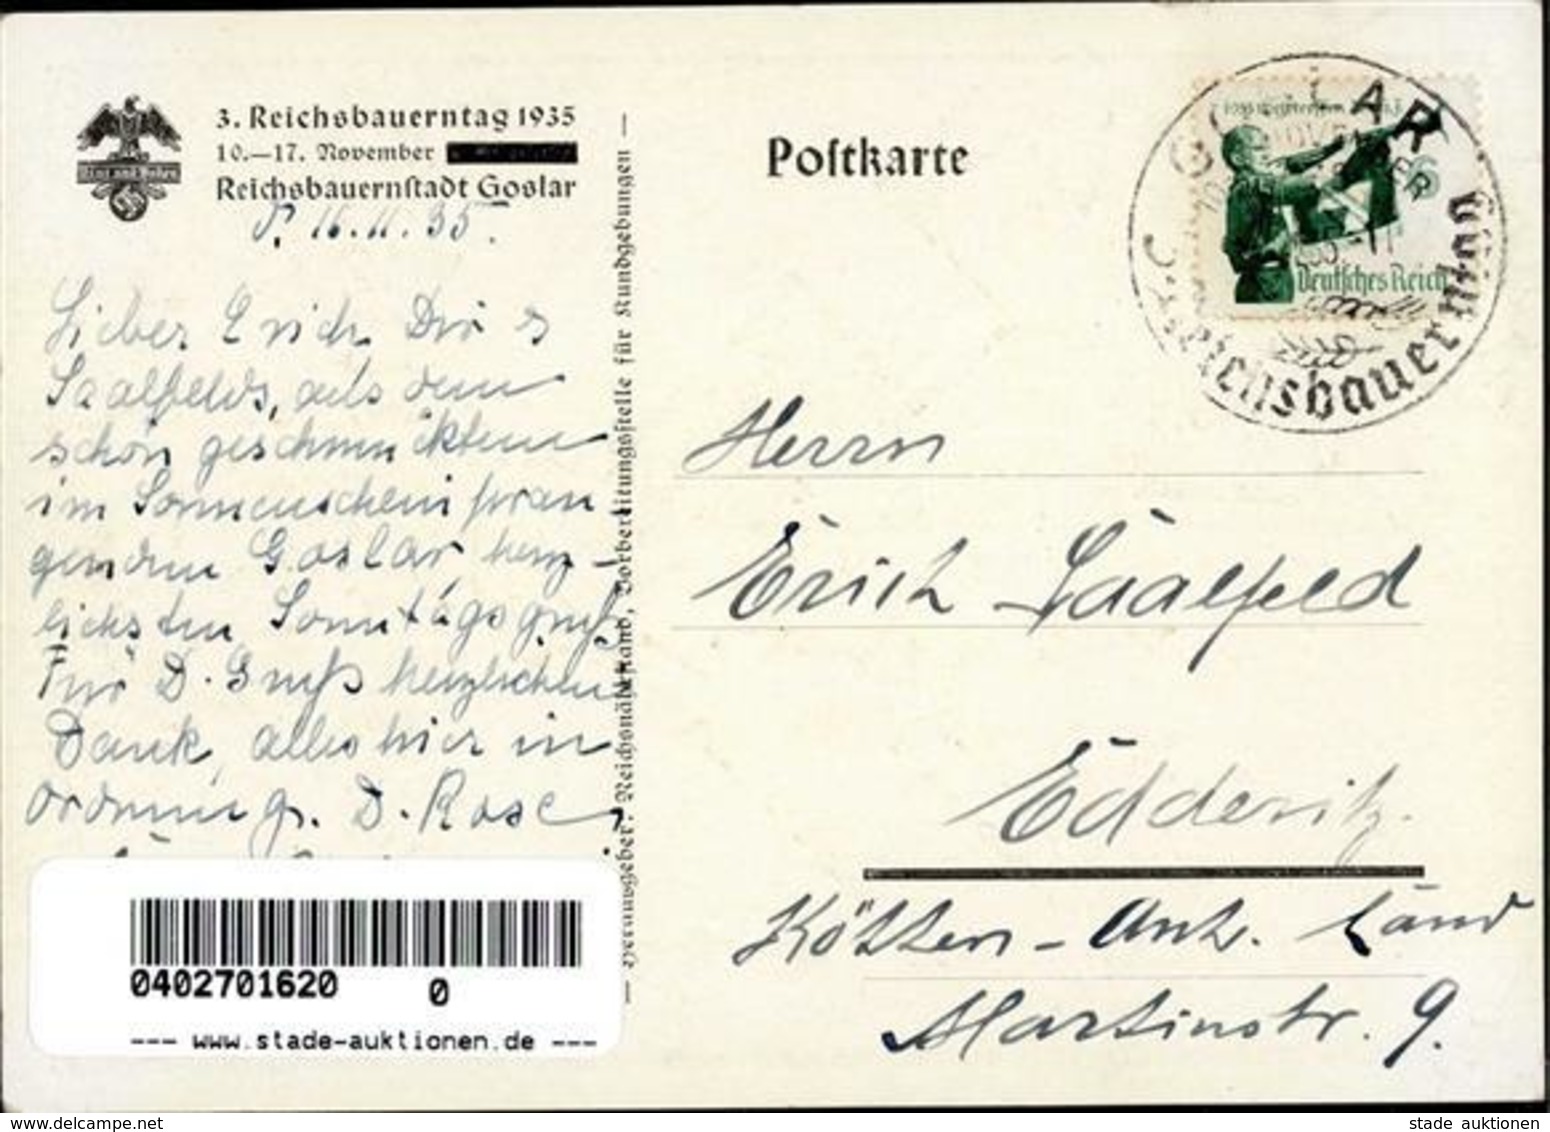 3. Reichsbauerntag 1935
10.—17. November
Reichsbauernſtadt Goslar
Blut und Boden
d. 16.11.35.
Lieber Erich. Dir u
Saalfelds, aus dem
schön geschmückten
im Sonnenschein pran
genden Goslar herz-
lichsten Sonntagsgruß
Für D. Gruß herzlichen
Dank, alles hier in
Ordnung. D. Rose
— Herausgeber: Reichsnährſtand, Vorbereitungsſtelle für Kundgebungen —
Poſtkarte
GOSLAR
3. Reichsbauerntag
6
Deutſches Reich
Herrn
Erich Saalfeld
Edderitz.
Köthen-Anh. Land
Martinstr. 9.
0402701620 0
--- www.stade-auktionen.de ---
stade auktionen